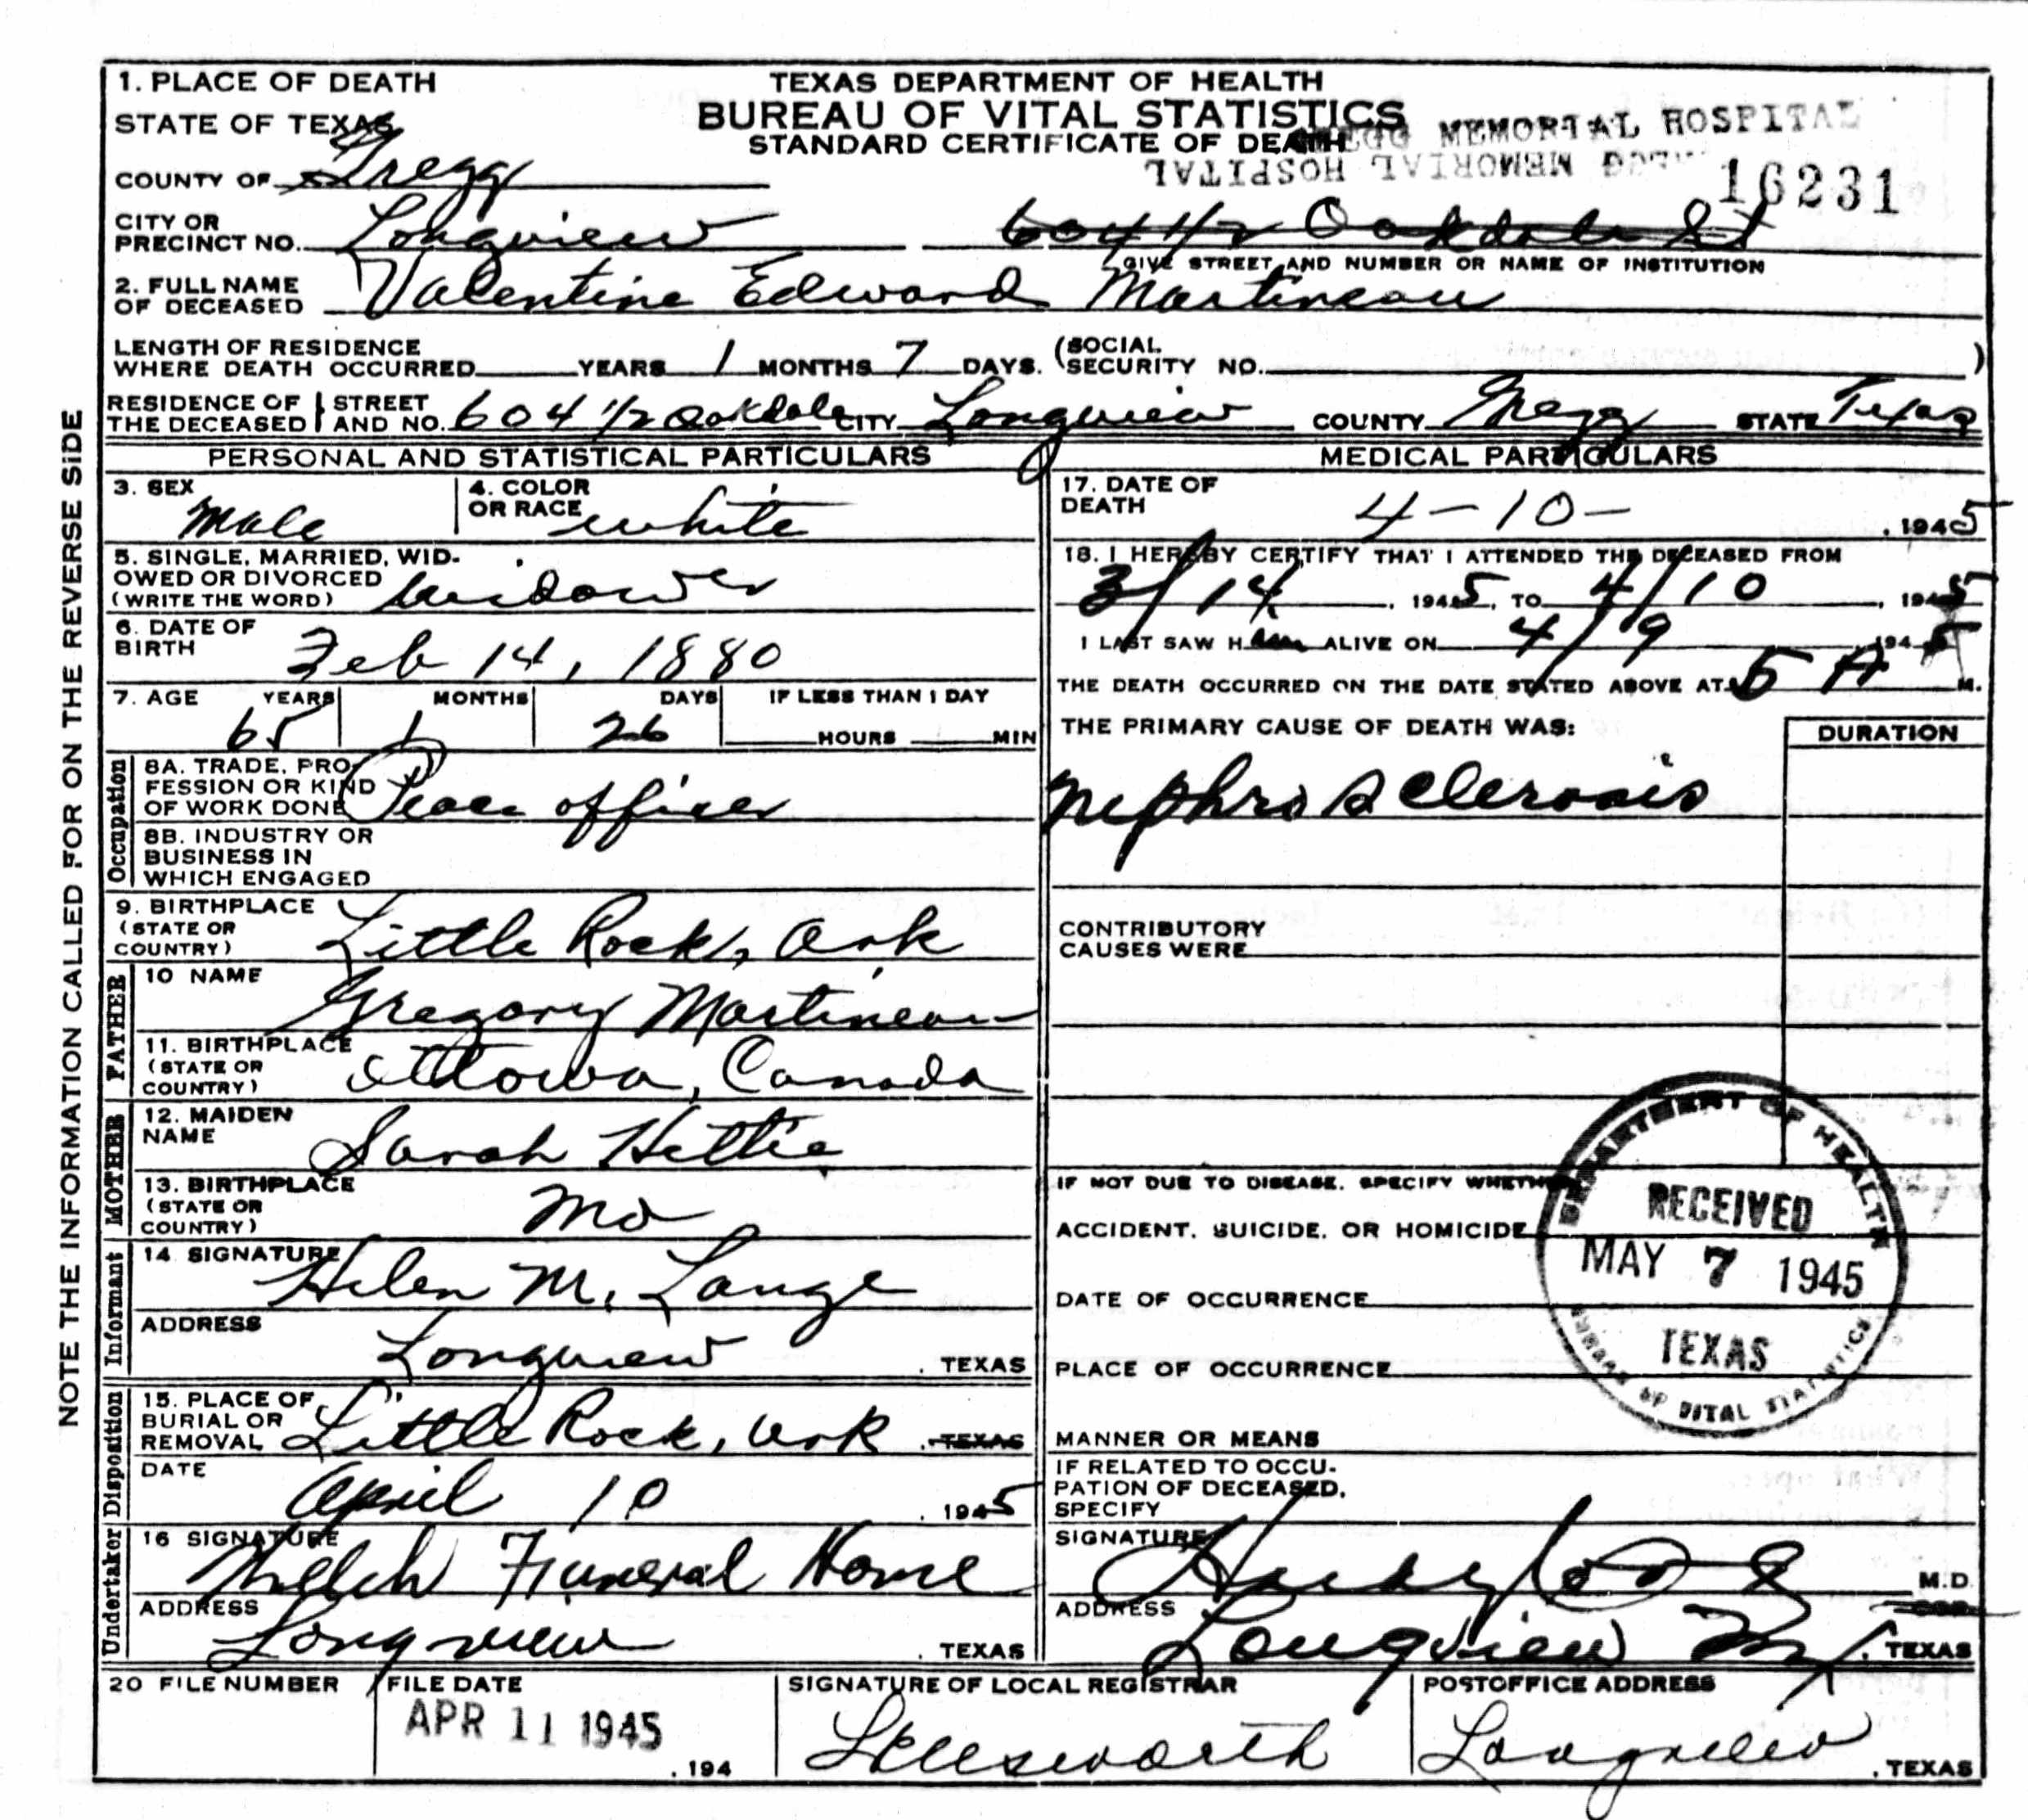 1. PLACE OF DEATH
TEXAS DEPARTMENT OF HEALTH
BUREAU OF VITAL STATISTICS
STANDARD CERTIFICATE OF DEATH
MEMORIAL HOSPITAL
MEMORIAL HOSPITAL
16231
STATE OF TEXAS
COUNTY OF Gregg
CITY OR
PRECINCT NO. Longview 604 1/2 Oakdale St
GIVE STREET AND NUMBER OR NAME OF INSTITUTION
2. FULL NAME
OF DECEASED Valentine Edward Martineau
LENGTH OF RESIDENCE
WHERE DEATH OCCURRED YEARS 1 MONTHS 7 DAYS. (SOCIAL
SECURITY NO. )
RESIDENCE OF THE DECEASED STREET AND NO. 604 1/2 Oakdale CITY Longview COUNTY Gregg STATE Texas
NOTE THE INFORMATION CALLED FOR ON THE REVERSE SIDE
PERSONAL AND STATISTICAL PARTICULARS
3. SEX Male
4. COLOR OR RACE white
5. SINGLE, MARRIED, WID-
OWED OR DIVORCED
(WRITE THE WORD) widower
6. DATE OF
BIRTH Feb 14, 1880
7. AGE YEARS MONTHS DAYS IF LESS THAN 1 DAY
65 1 26 HOURS MIN
Occupation
8A. TRADE, PRO-
FESSION OR KIND
OF WORK DONE Peace officer
8B. INDUSTRY OR
BUSINESS IN
WHICH ENGAGED
9. BIRTHPLACE
(STATE OR
COUNTRY) Little Rock, Ark
FATHER
10 NAME Gregory Martineau
11. BIRTHPLACE
(STATE OR
COUNTRY) Ottowa, Canada
MOTHER
12. MAIDEN
NAME Sarah Hettie
13. BIRTHPLACE
(STATE OR
COUNTRY) Mo
Informant
14 SIGNATURE Helen M. Lange
ADDRESS Longview, TEXAS
Undertaker Disposition
15. PLACE OF
BURIAL OR
REMOVAL Little Rock, Ark. TEXAS
DATE April 10, 1945
16 SIGNATURE Welch Funeral Home
ADDRESS Longview, TEXAS
MEDICAL PARTICULARS
17. DATE OF
DEATH 4-10-, 1945
18. I HEREBY CERTIFY THAT I ATTENDED THE DECEASED FROM
3/14, 1945, TO 4/10, 1945
I LAST SAW Him ALIVE ON 4/9 1945
THE DEATH OCCURRED ON THE DATE STATED ABOVE AT 5 A M.
THE PRIMARY CAUSE OF DEATH WAS: DURATION
Nephro sclerosis
CONTRIBUTORY
CAUSES WERE
IF NOT DUE TO DISEASE, SPECIFY WHETHER
ACCIDENT, SUICIDE, OR HOMICIDE
DATE OF OCCURRENCE
PLACE OF OCCURRENCE
MANNER OR MEANS
DEPARTMENT OF HEALTH
RECEIVED
MAY 7 1945
TEXAS
BUREAU OF VITAL STATISTICS
IF RELATED TO OCCU-
PATION OF DECEASED,
SPECIFY
SIGNATURE M.D.
ADDRESS Longview, TEXAS
20 FILE NUMBER
FILE DATE
APR 11 1945
, 194
SIGNATURE OF LOCAL REGISTRAR
POSTOFFICE ADDRESS
Longview
, TEXAS